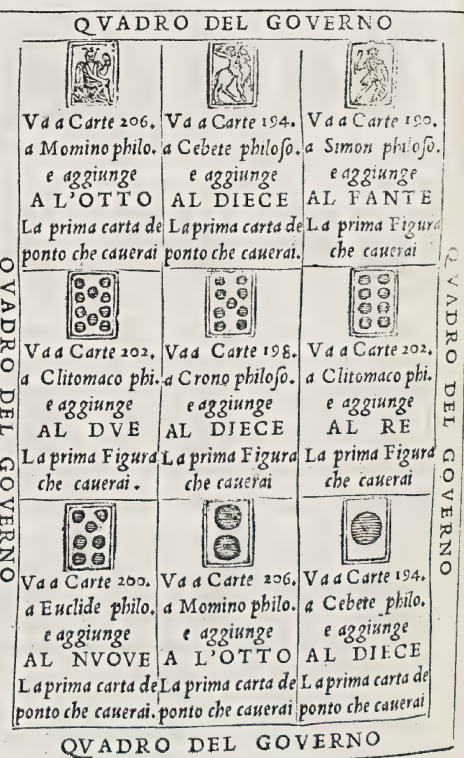 QVADRO DEL GOVERNO
Va a Carte 206.
a Momino philo.
e aggiunge
A L'OTTO
La prima carta de
ponto che cauerai
Va a Carte 194.
a Cebete philoſo.
e aggiunge
AL DIECE
La prima carta de
ponto che cauerai.
Va a Carte 190.
a Simon philoſo.
e aggiunge
AL FANTE
La prima Figura
che cauerai
QVADRO DEL GOVERNO
Va a Carte 202.
a Clitomaco phi.
e aggiunge
AL DVE
La prima Figura
che cauerai.
Va a Carte 198.
a Crono philoſo.
e aggiunge
AL DIECE
La prima Figura
che cauerai
Va a Carte 202.
a Clitomaco phi.
e aggiunge
AL RE
La prima Figura
che cauerai
QVADRO DEL GOVERNO
Va a Carte 200.
a Euclide philo.
e aggiunge
AL NVOVE
La prima carta de
ponto che cauerai.
Va a Carte 206.
a Momino philo.
e aggiunge
A L'OTTO
La prima carta de
ponto che cauerai
Va a Carte 194.
a Cebete philo.
e aggiunge
AL DIECE
La prima carta de
ponto che cauerai
QVADRO DEL GOVERNO